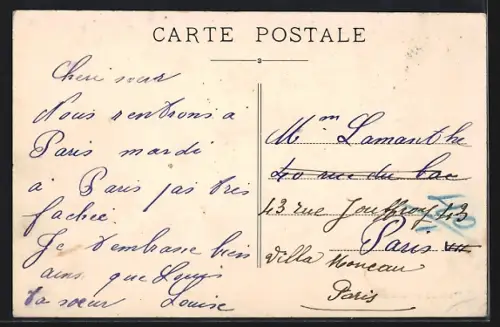 CARTE POSTALE
Cheri sœur
Nous rentrons a
Paris mardi
a Paris pas tres
fachée
Je t'embrasse bien
ains que Louis
ta sœur Louise
Mme Lamanthe
40 rue du bac
43 rue Jouffroy 43
Paris VII
Villa Monceau
Paris